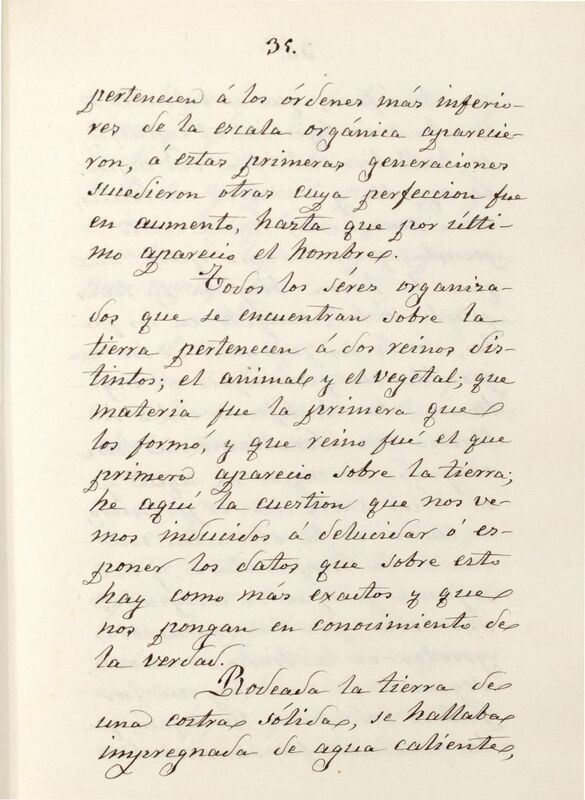 35.
pertenecen á los órdenes más inferio-
res de la escala orgánica aparecie-
ron, á estas primeras generaciones
sucedieron otras cuya perfeccion fue
en aumento, hasta que por últi-
mo aparecio el hombre.
Todos los séres organiza-
dos que se encuentran sobre la
tierra pertenecen á dos reinos dis-
tintos; el animal y el vegetal; que
materia fue la primera que
los formó, y que reino fué el que
primero aparecio sobre la tierra;
he aquí la cuestion que nos ve-
mos inducidos á delucidar ó es-
poner los datos que sobre esto
hay como más exactos y que
nos pongan en conocimiento de
la verdad.
Rodeada la tierra de
una costra sólida, se hallaba
impregnada de agua caliente,